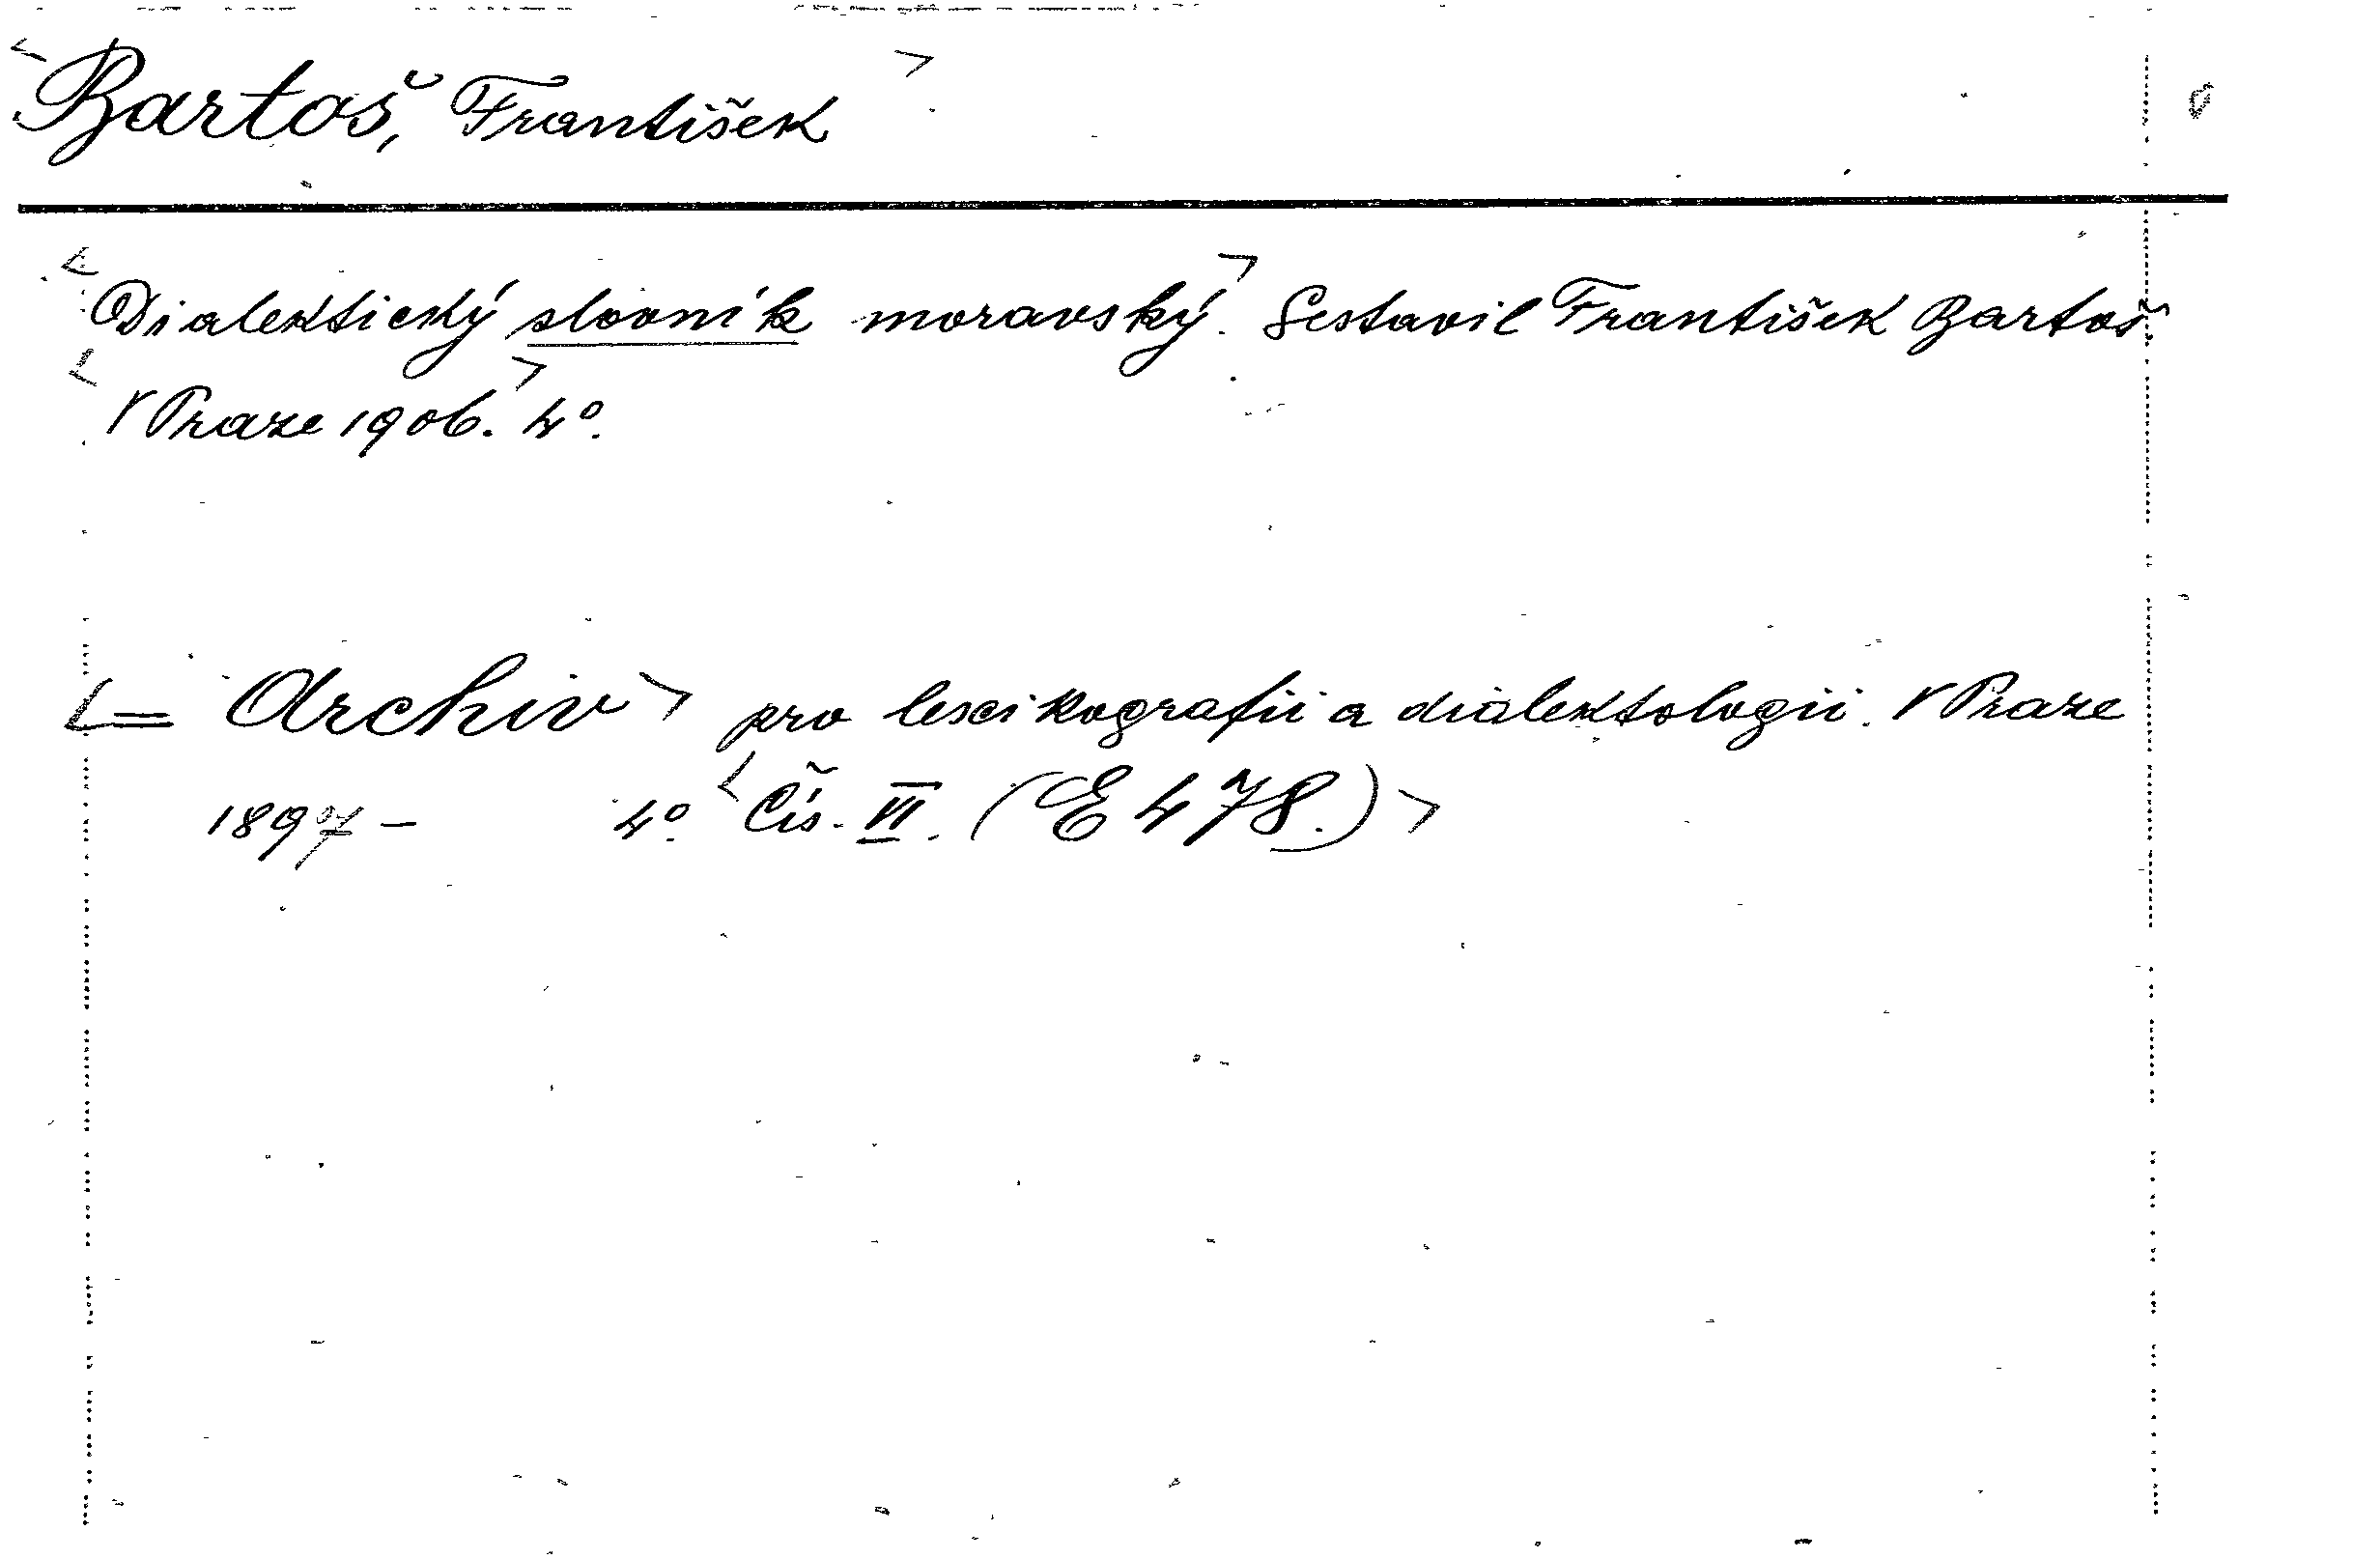 <Bartoš, František>
<Dialektický slovník moravský.> Sestavil František Bartoš.
<V Praze 1906.> 4°.
<= Archiv> pro lexikografii a dialektologii. V Praze
1897 - 4°. <Čís. VI. (E 478.)>